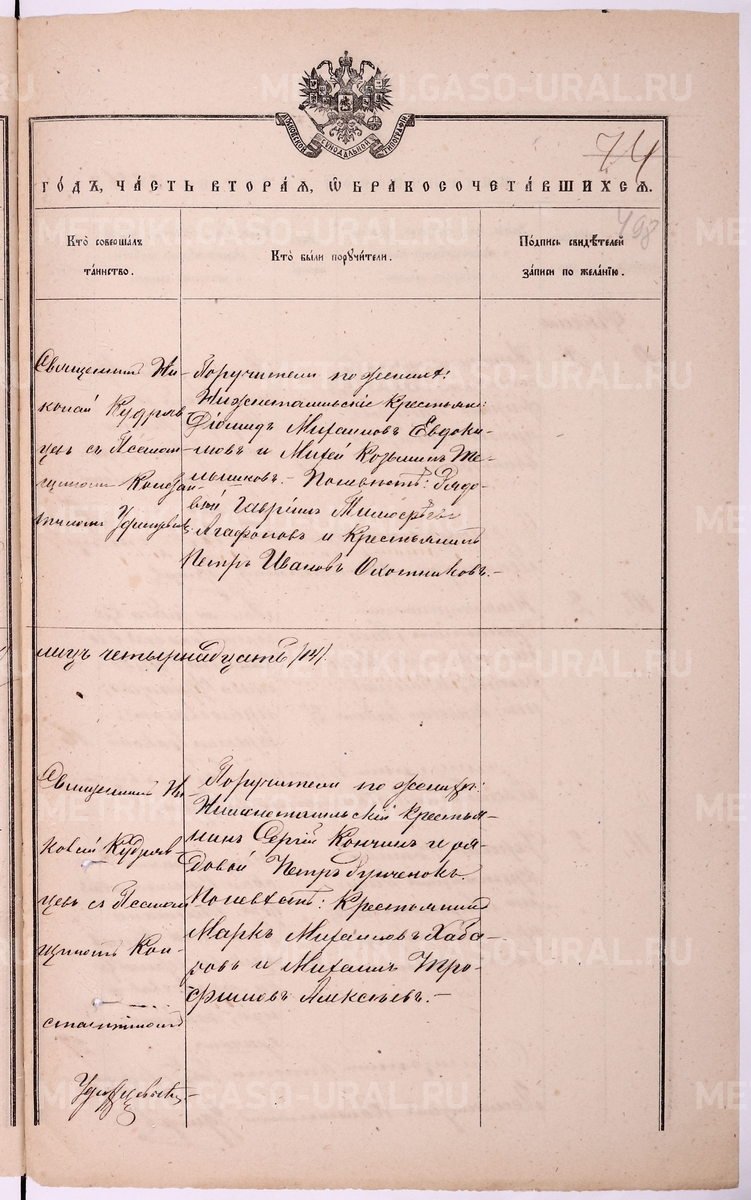 МОСКОВСКОЙ СѴНОДАЛЬНОЙ ТИПОГРАФІИ
74
498
ГО́ДЪ, ЧА́СТЬ ВТОРА́Я, Ѡ҆ БРАКОСОЧЕТА́ВШИХСЯ.
Кто̀ соверша́лъ
та́инство.
Кто̀ бы́ли поручи́тели.
По́дпись свидѣ́телей
за́писи по жела́нїю.
Священникъ Ни-
колай Кудряв
цевъ съ Псалом-
щикомъ Констан-
Поручители по женихѣ:
Нижнетагильскіе крестьяне:
Діомидъ Михаиловъ Евдоки-
мовъ и Михей Козьминъ Ме-
льниковъ. - По невѣстѣ: Рядо-
вой Гавріилъ
Агафоновъ и крестьянинъ
Петръ Ивановъ Охотниковъ. -
лицъ четырнадцать /14/.
Священникъ Ни
колай Кудряв
цевъ съ Псалом
щикомъ Кон-
стантиномъ
Поручители по женихѣ:
Нижнетагильскій крестья-
нинъ Сергій Кончинъ и ря-
довой Петръ
По невѣстѣ: крестьянинъ
Маркъ Михаиловъ Хаба-
ровъ и Михаилъ Тро-
фимовъ Алексѣевъ. -
METRIKI.GASO-URAL.RU